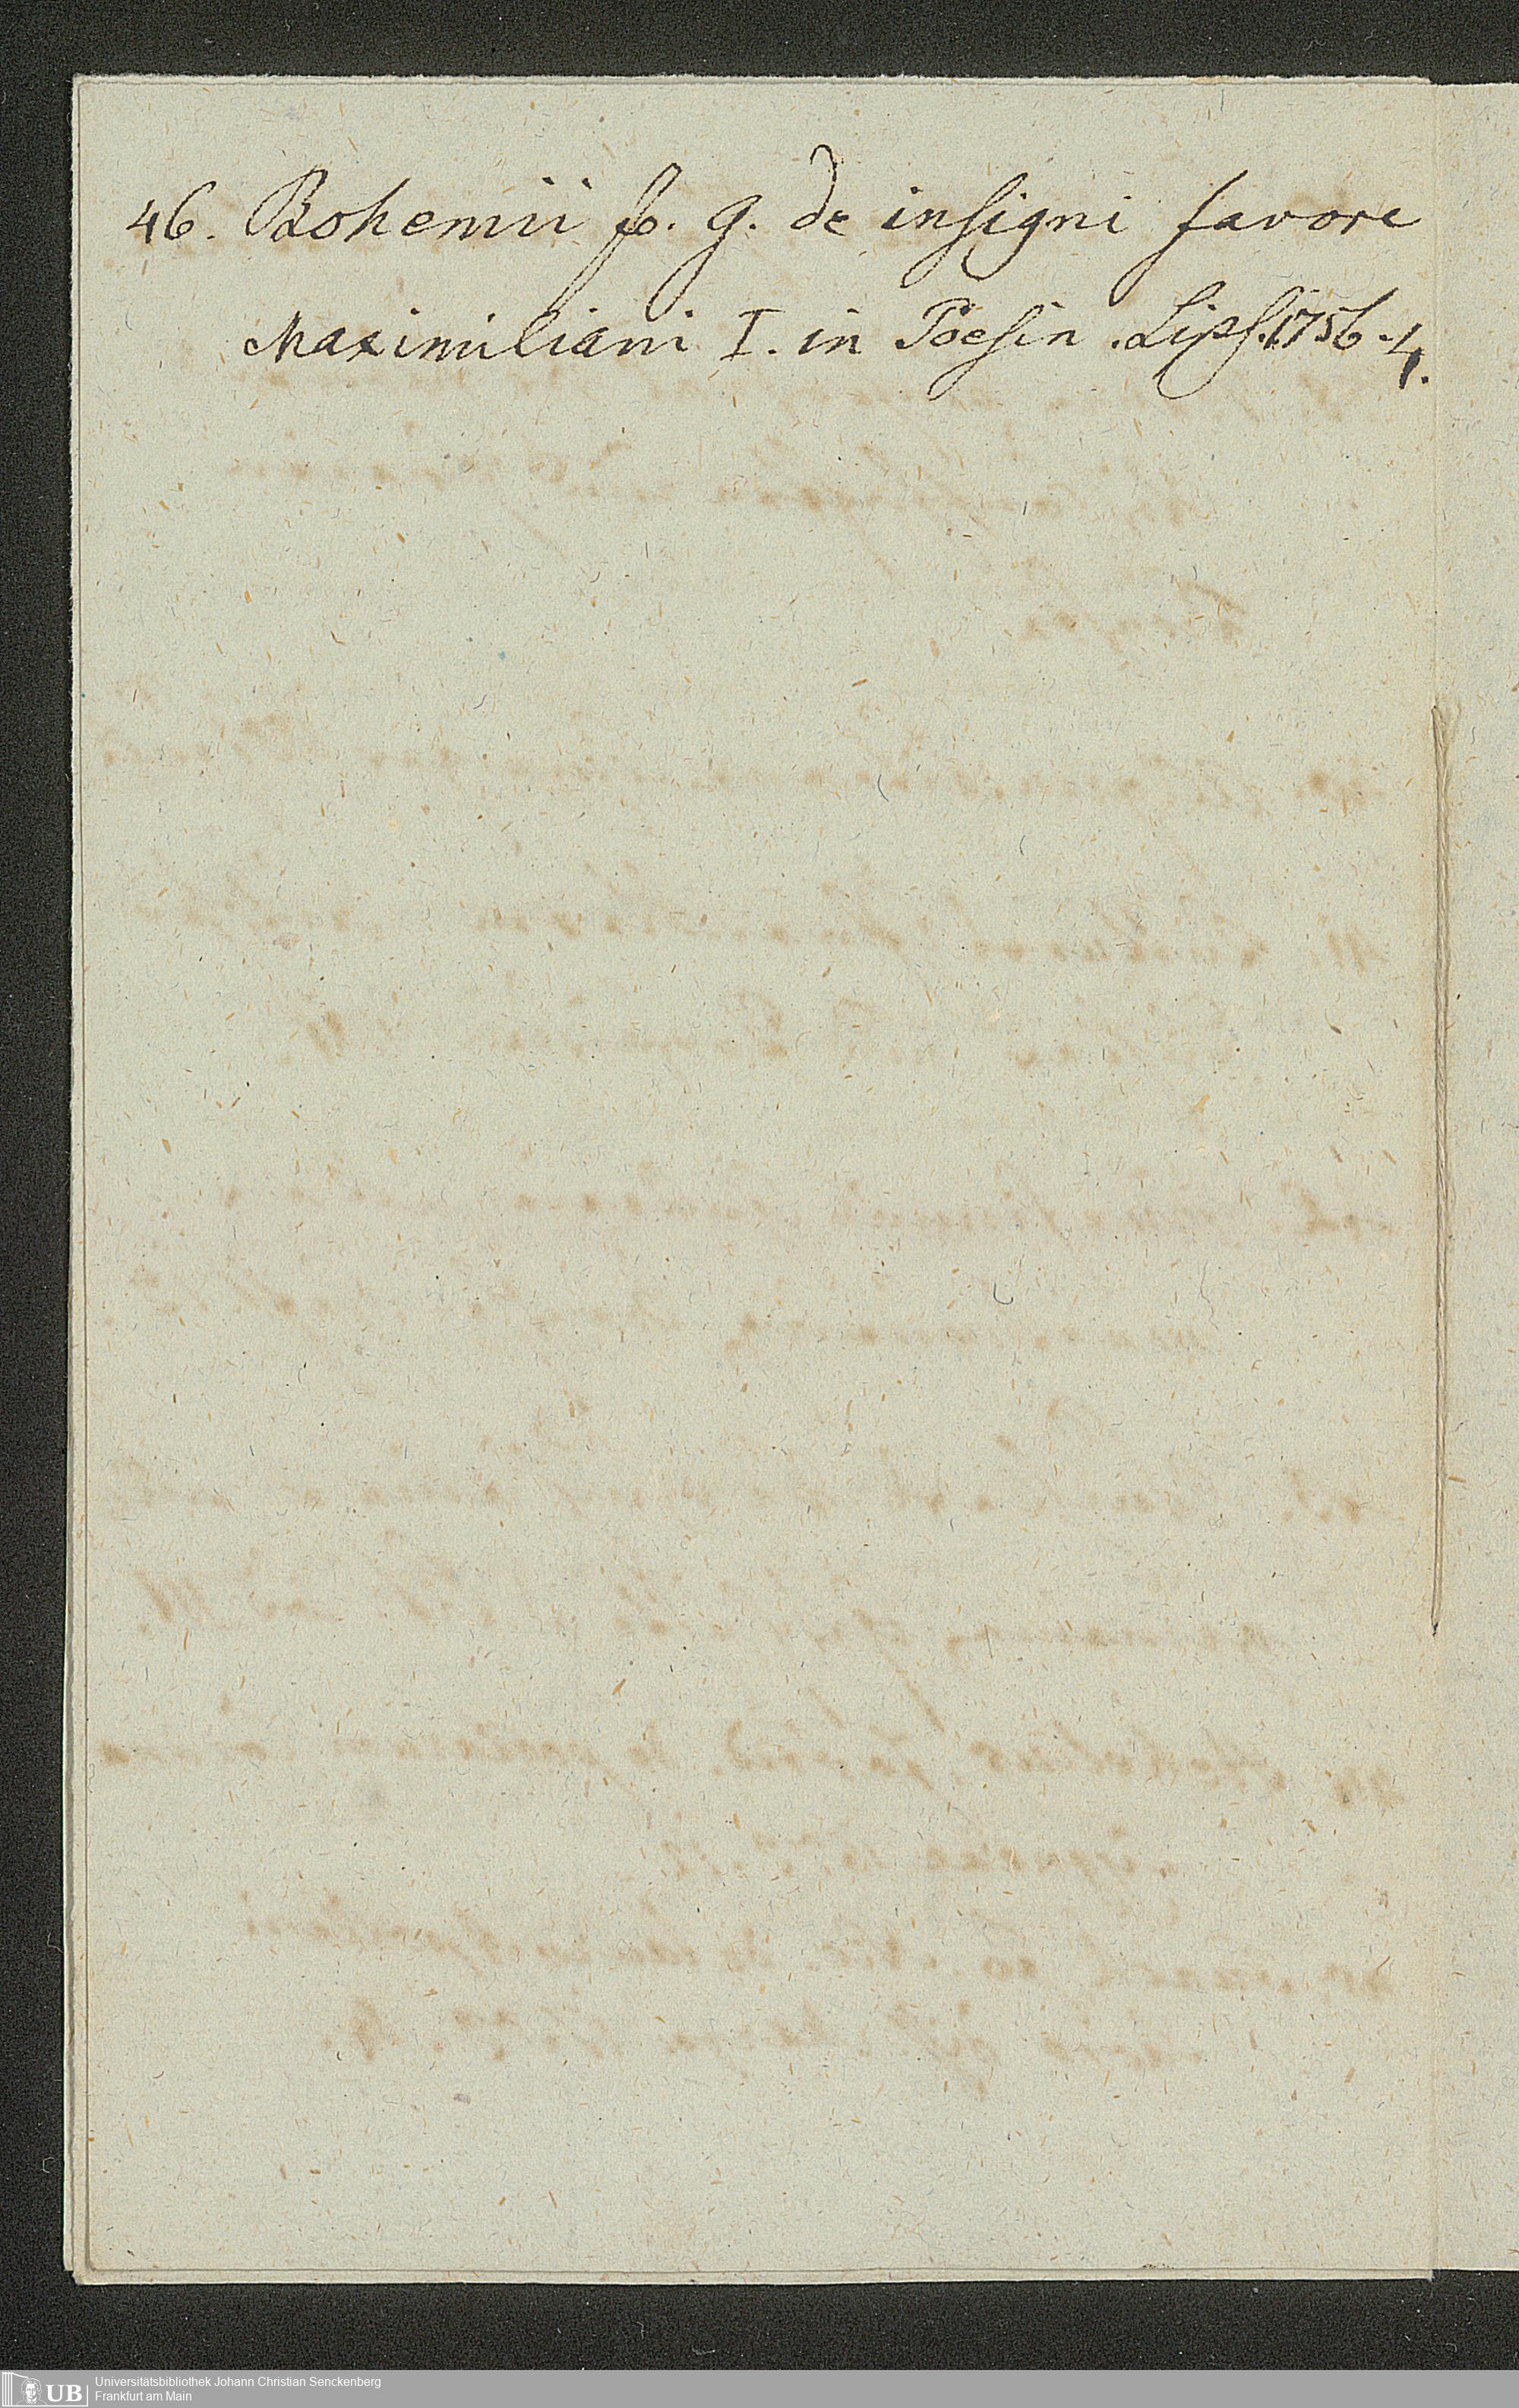 46. Bohemii fr. g. de insigni favore
Maximiliani I. in Poesin. Lips. 1756. 4.
UB
Universitätsbibliothek Johann Christian Senckenberg
Frankfurt am Main